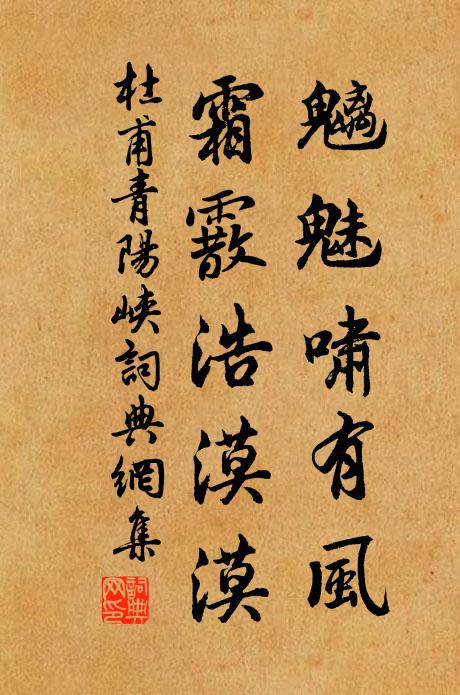 魑魅嘯有風
霜霰浩漠漠
杜甫青陽峽詞典網集
詞典網印